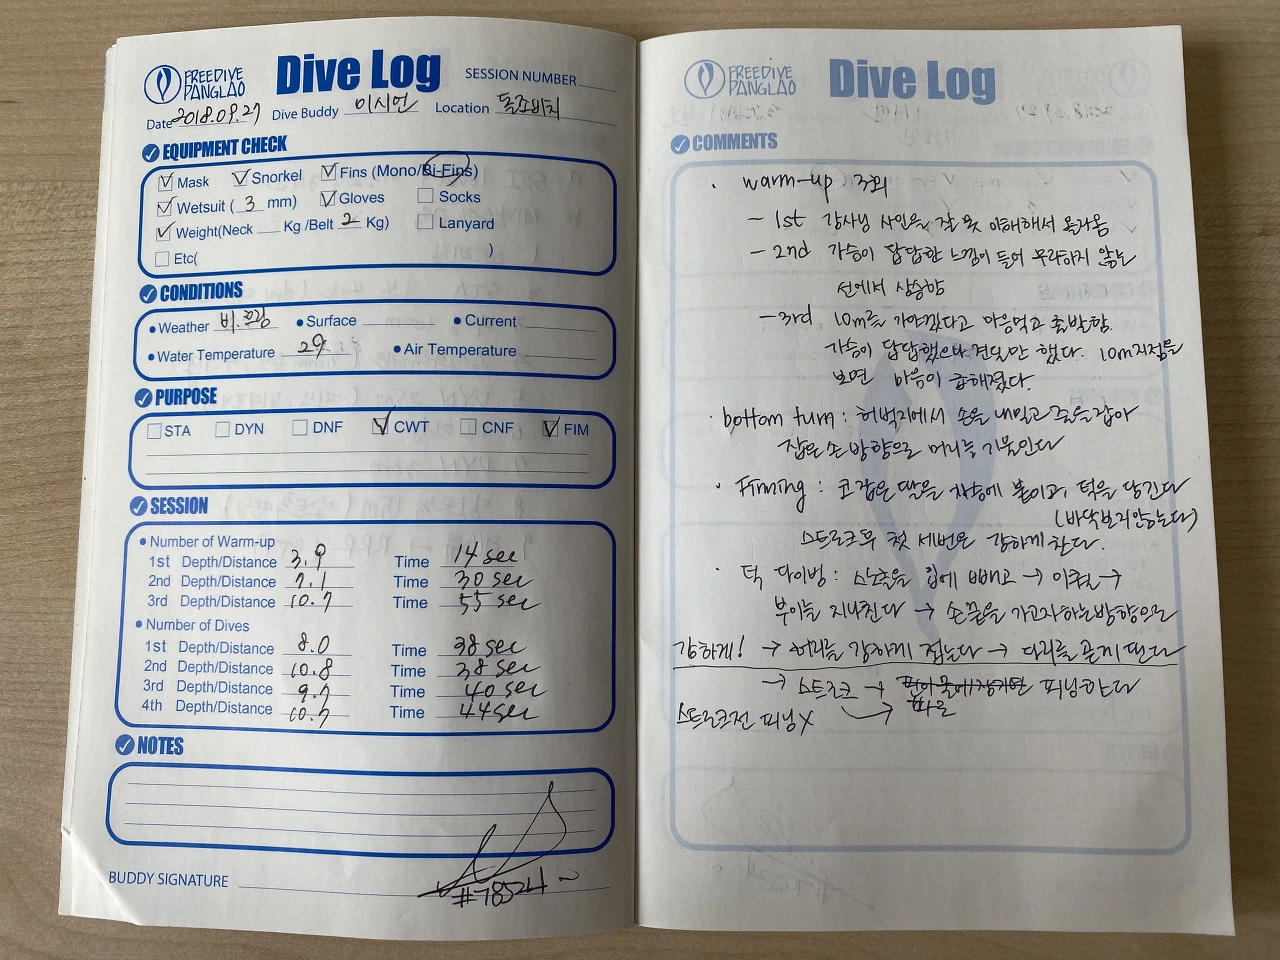 FREEDIVE PANGLAO
Dive Log
SESSION NUMBER
Date 2018.09.27 Dive Buddy 이시언 Location 돌조비치
EQUIPMENT CHECK
Mask Snorkel Fins (Mono/Bi-Fins)
Wetsuit ( 3 mm) Gloves Socks
Weight(Neck Kg /Belt 2 Kg) Lanyard
Etc( )
CONDITIONS
Weather 비.흐림 Surface Current
Water Temperature 29 Air Temperature
PURPOSE
STA DYN DNF CWT CNF FIM
SESSION
Number of Warm-up
1st Depth/Distance 3.9 Time 14 sec
2nd Depth/Distance 7.1 Time 30 sec
3rd Depth/Distance 10.7 Time 55 sec
Number of Dives
1st Depth/Distance 8.0 Time 38 sec
2nd Depth/Distance 10.8 Time 38 sec
3rd Depth/Distance 9.7 Time 40 sec
4th Depth/Distance 10.7 Time 44 sec
NOTES
BUDDY SIGNATURE #78524
FREEDIVE PANGLAO
Dive Log
COMMENTS
· warm-up 3회
- 1st 강사님 사인을 잘 못 이해해서 올라옴
- 2nd 가슴이 답답한 느낌이 들어 무리하지 않는
선에서 상승함
- 3rd 10m를 가야겠다고 마음먹고 출발함.
가슴이 답답했으나 견딜만 했다. 10m지점을
보면 마음이 급해졌다.
· bottom turn : 허벅지에서 손을 내밀고 줄을 잡아
잡은 손 방향으로 머리를 기울인다
· : 코 잡은 팔을 가슴에 붙이고, 턱을 당긴다
(바닥보지않는다)
스트로크 후 첫 세번은 강하게 찬다.
· 덕 다이빙 : 스노클을 입에 빼고 → 이퀄 →
부이를 지나친다 → 손끝을 가고자하는방향으로
강하게! → 허리를 강하게 접는다 → 다리를 곧게 편다
→ 스트로크 → 피닝한다
스트로크전 피닝X